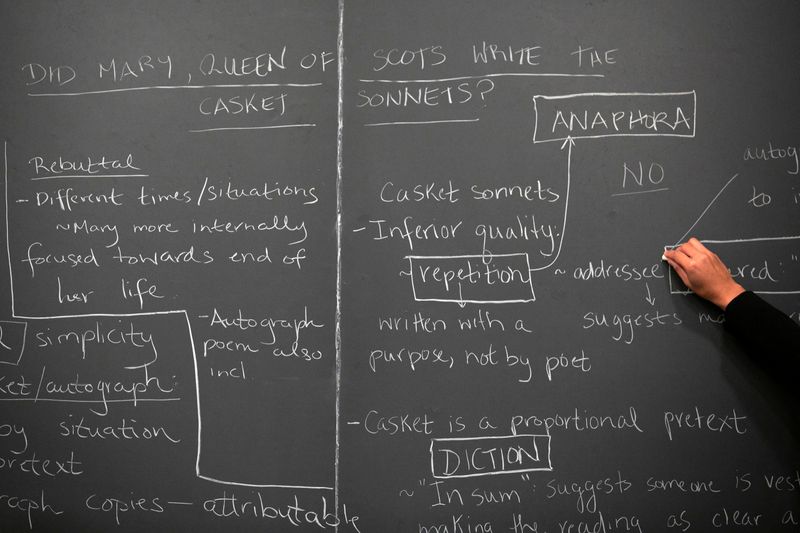 DID MARY, QUEEN OF SCOTS WRITE THE
CASKET SONNETS?
Rebuttal
- Different times/situations
~ Mary more internally
focused towards end of
her life.
simplicity
- Autograph
poem also
incl.
/autograph:
by situation
pretext
copies — attributable
ANAPHORA
NO
Casket sonnets
- Inferior quality:
~ repetition
written with a
purpose, not by poet
~ addressee
suggests
to
- Casket is a proportional pretext
DICTION
~ "In sum": suggests someone is
making the reading as clear a